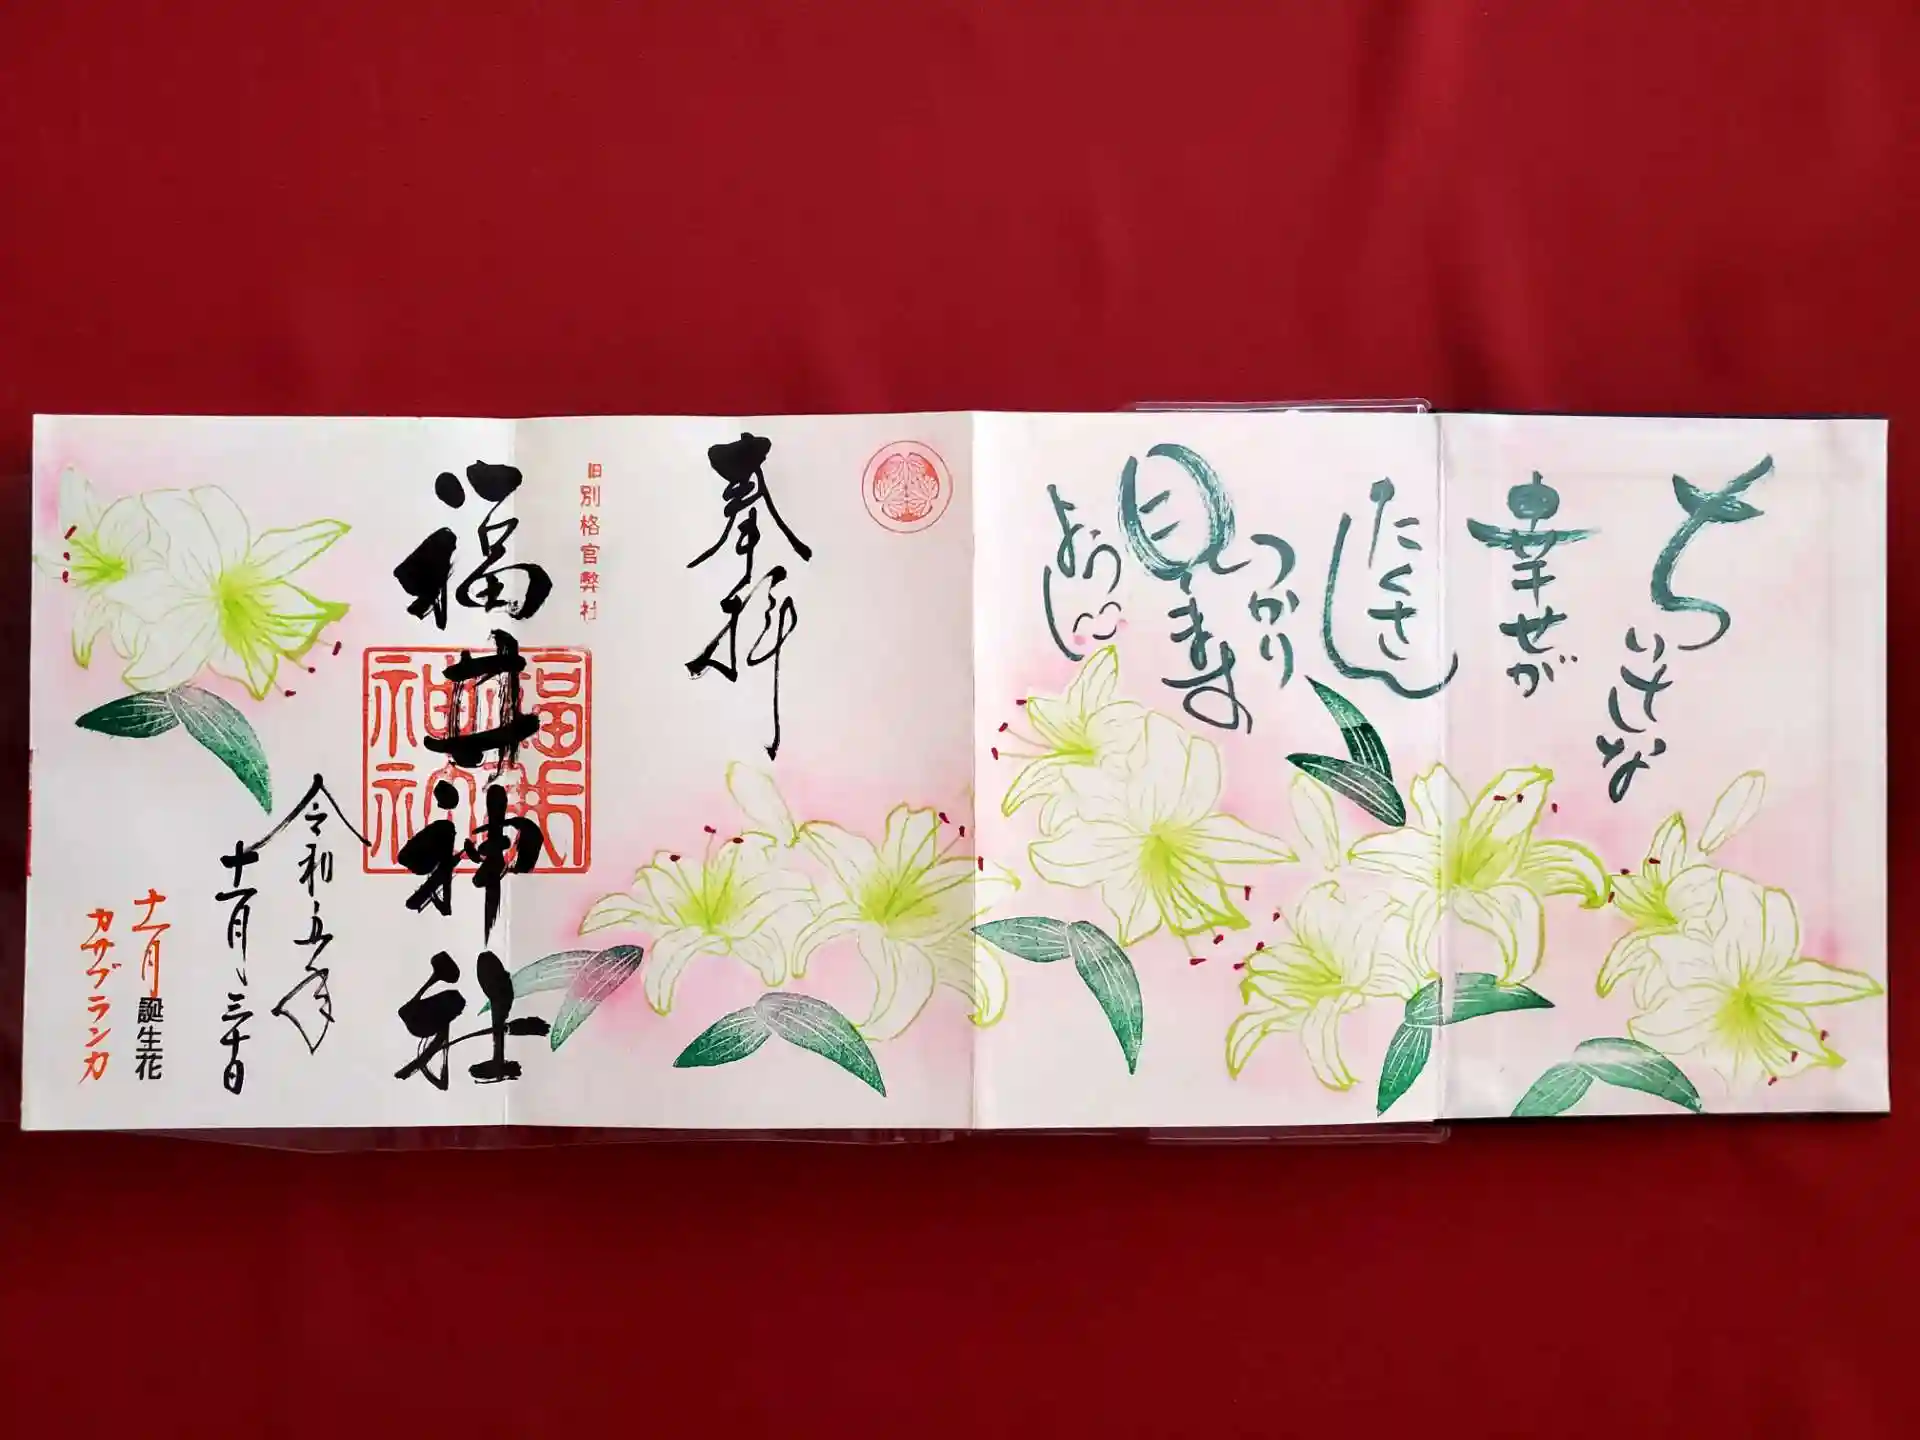 ちいさな
幸せが
たくさん
見つかり
ますよ〜に
奉拝
旧別格官幣社
福井神社
福井
神社
令和五年
十一月三十日
十一月誕生花
カサブランカ